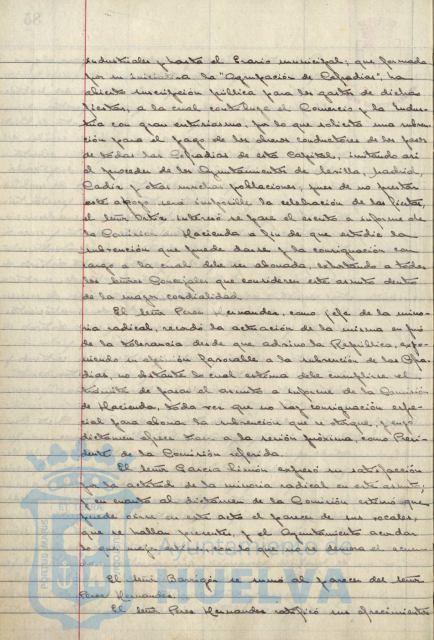 industriales y hasta el Erario municipal; que formada
por su iniciativa la "Agrupación de Cofradías", ha
abierto suscripción pública para los gastos de dichas
fiestas, a la cual contribuye el Comercio y la Indus-
tria con gran entusiasmo, por lo que solicita una subven-
ción para el pago de los obreros conductores de los pasos
de todas las Cofradías de esta Capital, imitando así
el proceder de los Ayuntamientos de Sevilla, Madrid,
Cádiz y otras muchas poblaciones, pues de no prestar
este apoyo será imposible la celebración de las fiestas,
el señor interesó se pase el escrito a informe de
la Comisión de Hacienda a fin de que estudie la
subvención que puede darse y la consignación con
cargo a la cual debe ser abonada, exhortando a todos
los señores Concejales que consideren este asunto dentro
de la mayor cordialidad.
El señor Perez Hernandez, como jefe de la mino-
ria radical, recordó la actuación de la misma en pró
de la tolerancia desde que advino la República, expo-
niendo su opinión favorable a la subvención de las Cofra-
dias, no obstante lo cual estima debe cumplirse el
trámite de pasar el asunto a informe de la Comisión
de Hacienda, toda vez que no hay consignación espe-
cial para abonar la subvención que se otorgue, y cuyo
dictamen ofrece traer a la sesión próxima, como Presi-
dente de la Comisión referida.
El señor García Limón expresó su satisfacción
por la actitud de la minoria radical en este asunto;
y en cuanto al dictamen de la Comisión estima que
puede oirse en este acto el parecer de sus vocales,
que se hallan presentes, y el Ayuntamiento acordar
lo que mejor proceda, con lo que no se demora el acuer-
do.
El señor Barrigón se sumó al parecer del señor
Perez Hernandez.
El señor Perez Hernandez ratificó sus ofrecimientos
AYUNTAMIENTO DE
HUELVA